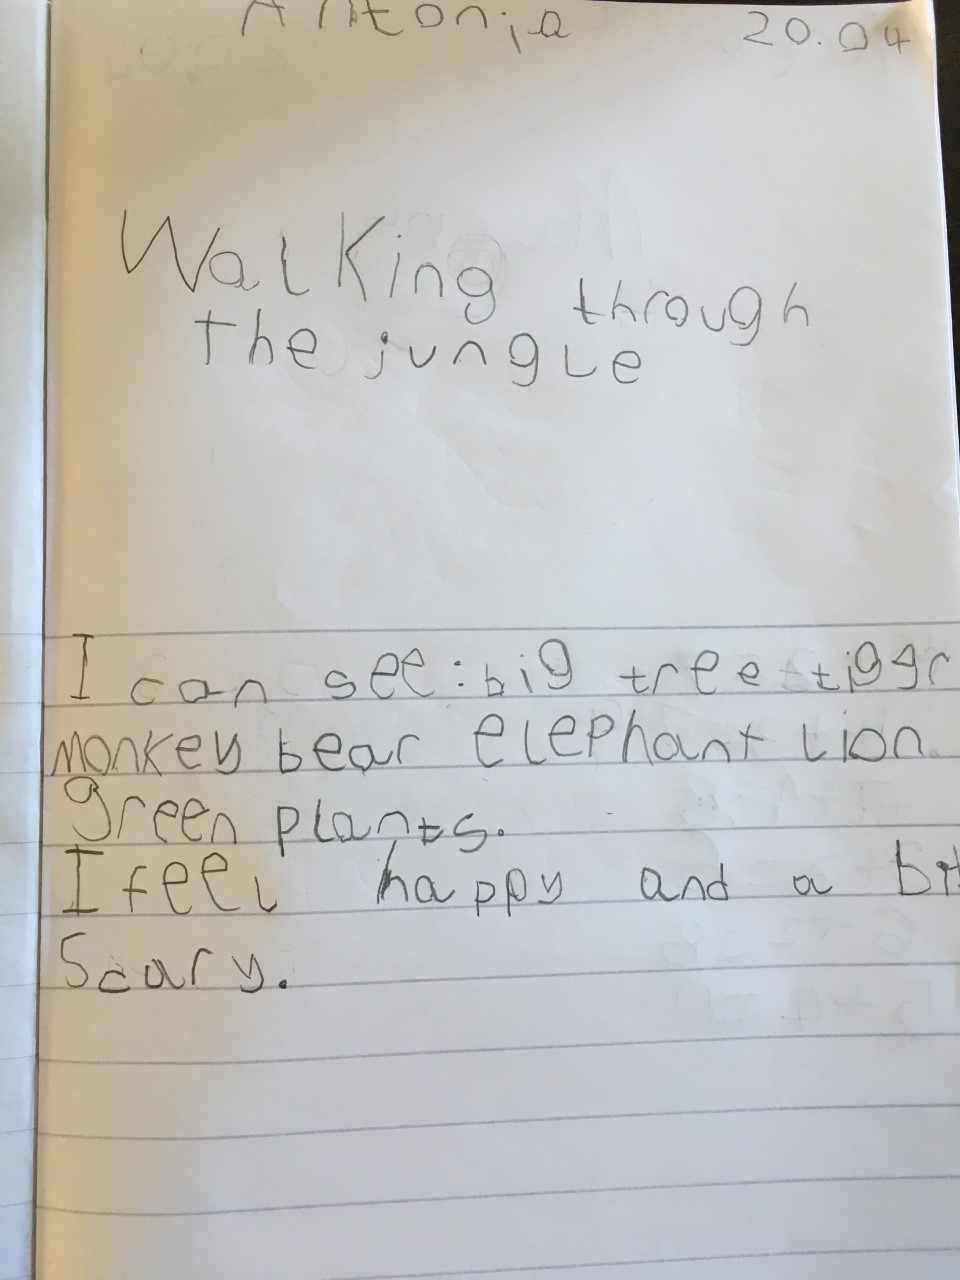 Antonia 20.04
Walking through
the jungle
I can see: big tree tiggr
monkey bear elephant lion
green plants.
I feel happy and a bit
Scary.